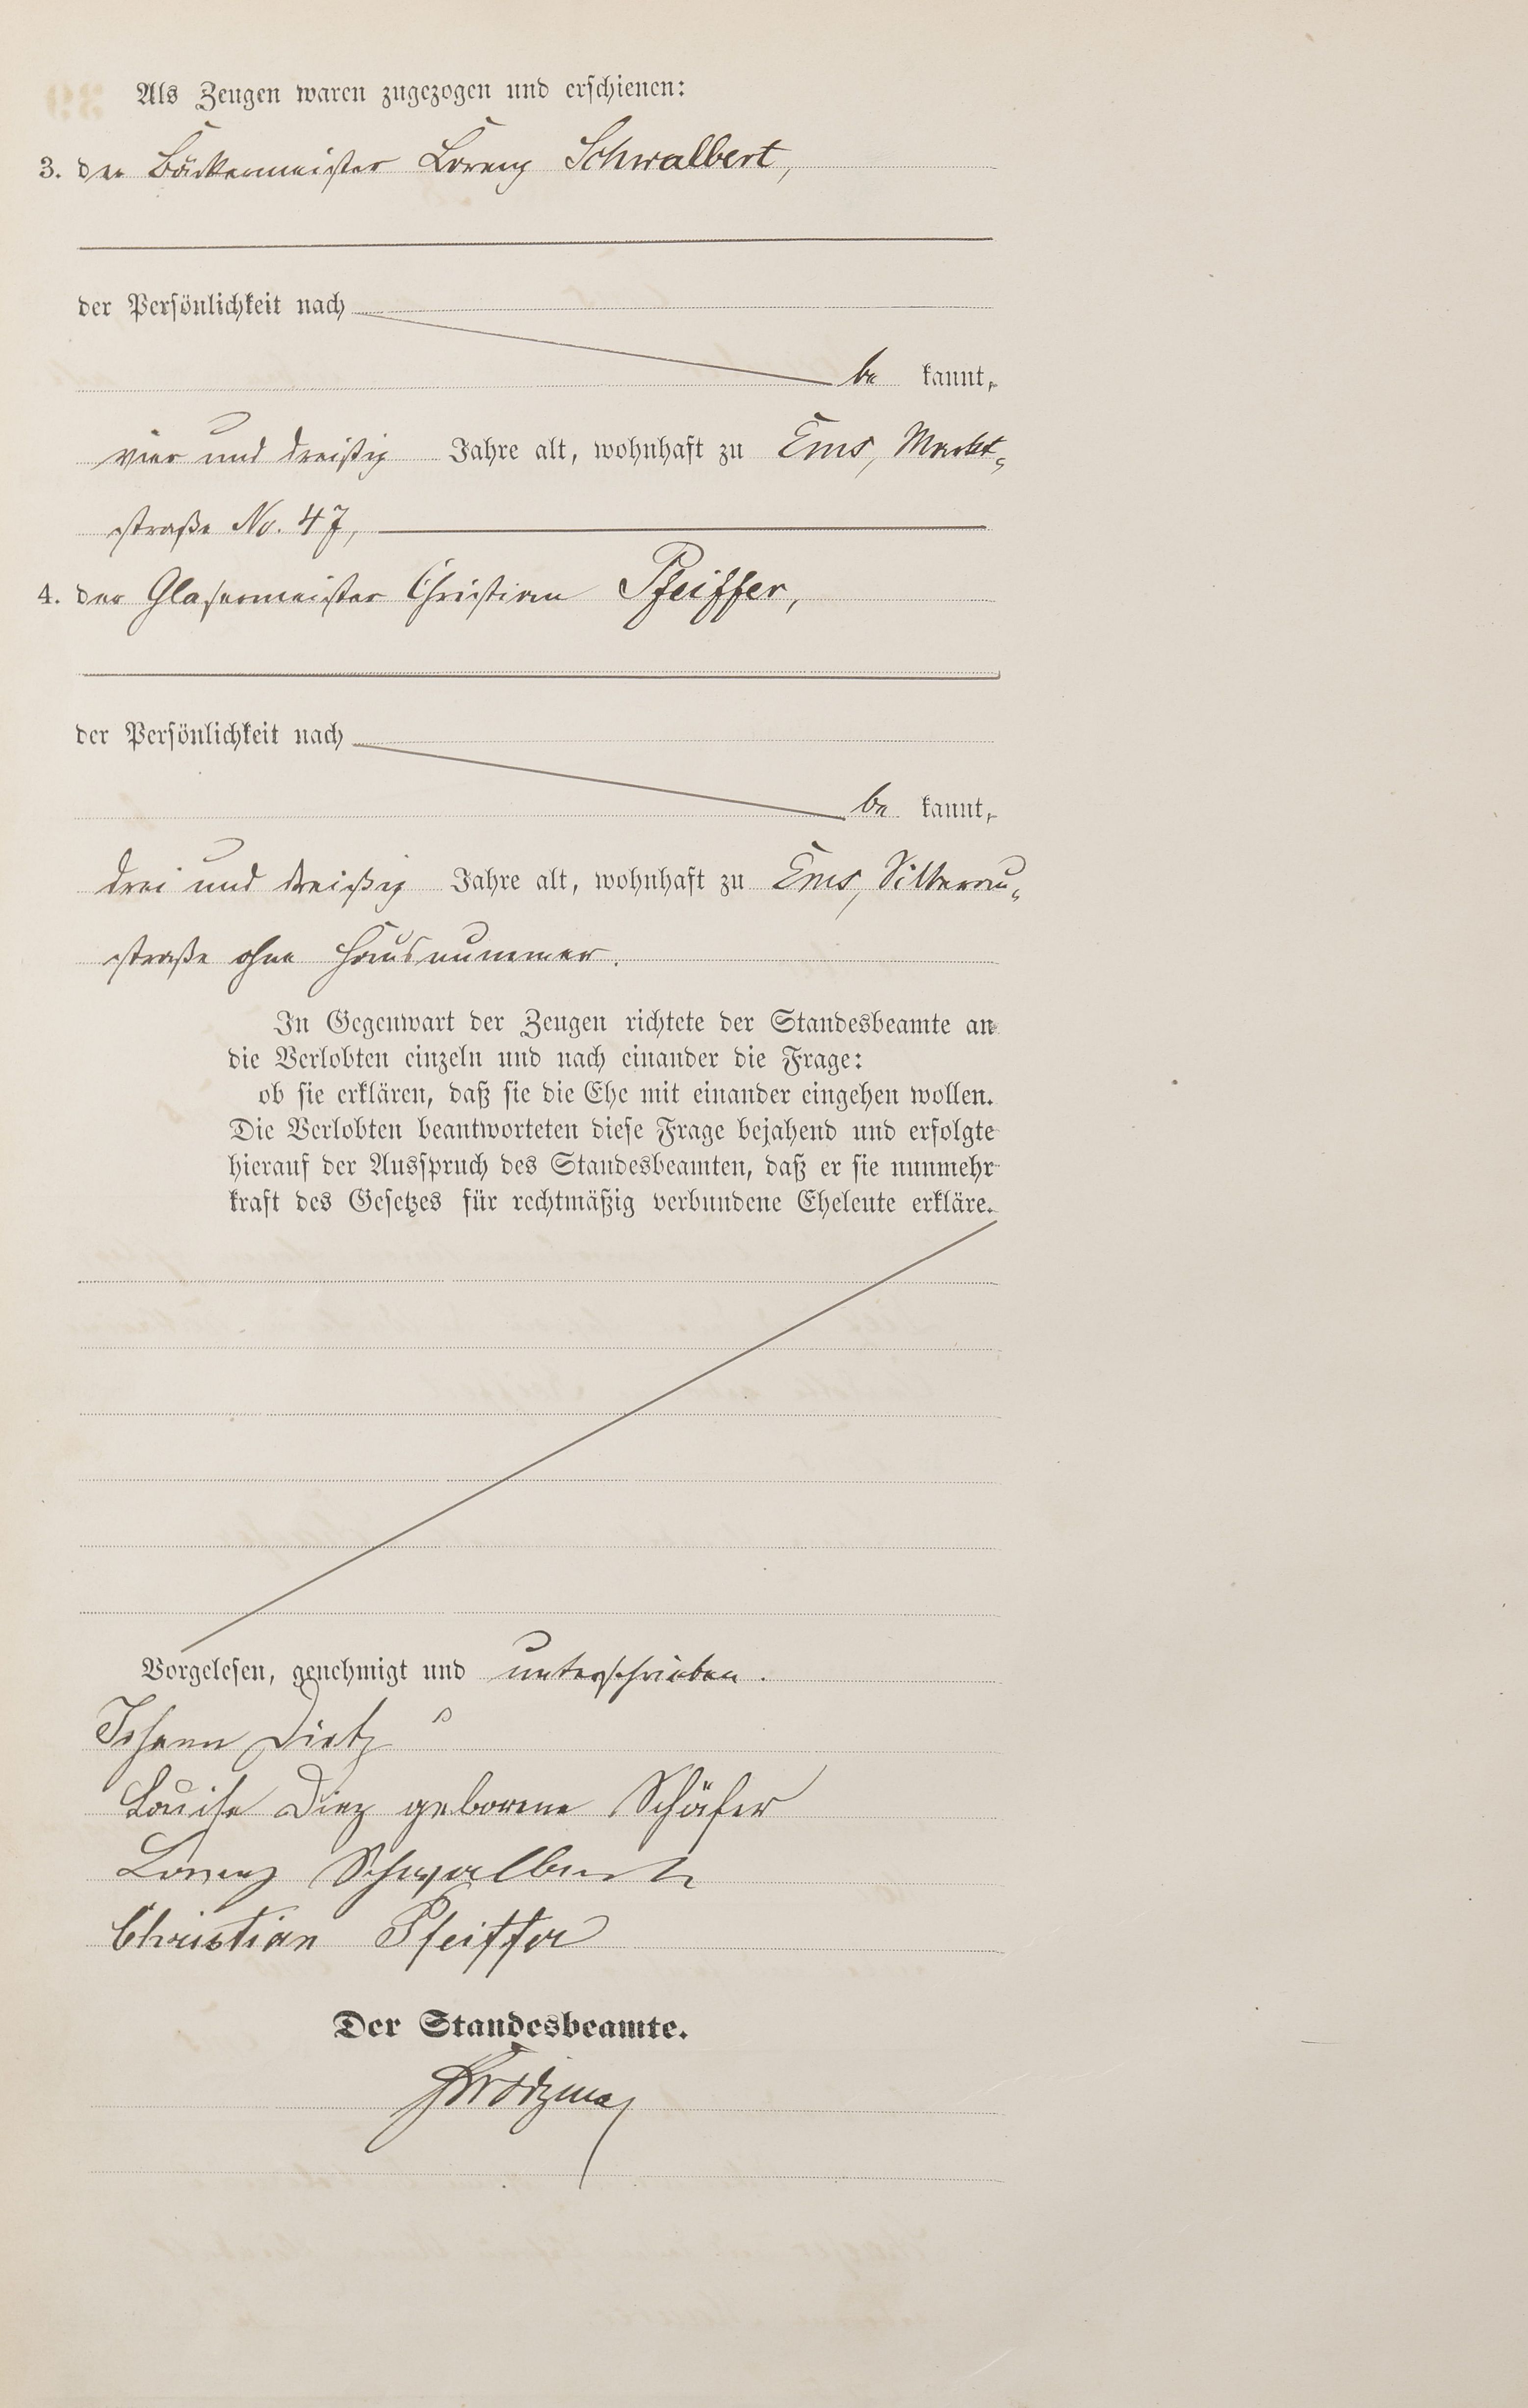 Als Zeugen waren zugezogen und erschienen:
3. der Bäckermeister Lorenz Schwalbert,
der Persönlichkeit nach
be kannt,
vier und dreißig Jahre alt, wohnhaft zu Ems, Markt-
straße No. 47,
4. der Glasermeister Christian Pfeiffer,
der Persönlichkeit nach
be kannt,
drei und dreißig Jahre alt, wohnhaft zu Ems, Silberau-
straße ohne Hausnummer.
In Gegenwart der Zeugen richtete der Standesbeamte an
die Verlobten einzeln und nach einander die Frage:
ob sie erklären, daß sie die Ehe mit einander eingehen wollen.
Die Verlobten beantworteten diese Frage bejahend und erfolgte
hierauf der Ausspruch des Standesbeamten, daß er sie nunmehr
kraft des Gesetzes für rechtmäßig verbundene Eheleute erkläre.
Vorgelesen, genehmigt und unterschrieben.
Johann Dietz
Louise Diez geborene Schäfer
Lorenz Schwalbert
Christian Pfeiffer
Der Standesbeamte.